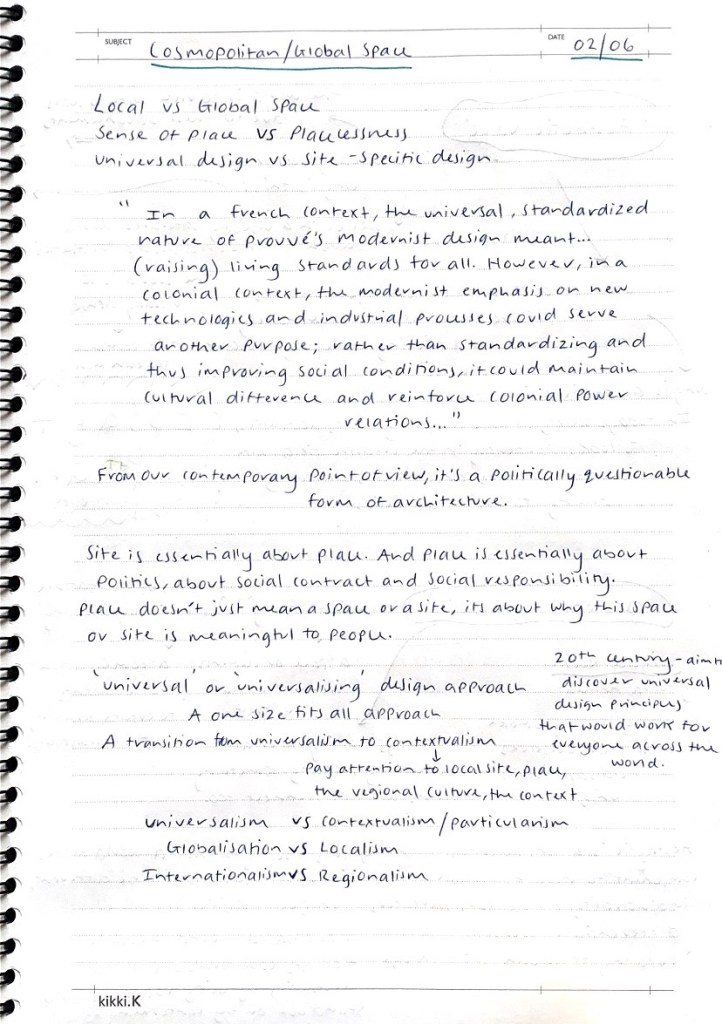 SUBJECT
Cosmopolitan/Global Space
DATE
02/06
Local vs Global Space
Sense of Place vs Placelessness
Universal design vs Site-specific design
" In a french context, the universal, standardized
nature of Prouvé's modernist design meant...
(raising) living standards for all. However, in a
colonial context, the modernist emphasis on new
technologies and industrial processes could serve
another purpose; rather than standardizing and
thus improving social conditions, it could maintain
cultural difference and reinforce colonial power
relations..."
From our contemporary point of view, it's a politically questionable
form of architecture.
Site is essentially about place. And place is essentially about
politics, about social contract and social responsibility.
Place doesn't just mean a space or a site, its about why this space
or site is meaningful to people.
'universal' or 'universalising' design approach
A one size fits all approach
A transition from universalism to contextualism
↓
pay attention to local site, place,
the regional culture, the context
20th century - aim to
discover universal
design principles
that would work for
everyone across the
world.
Universalism vs contextualism/particularism
Globalisation vs Localism
Internationalism vs Regionalism
kikki.K